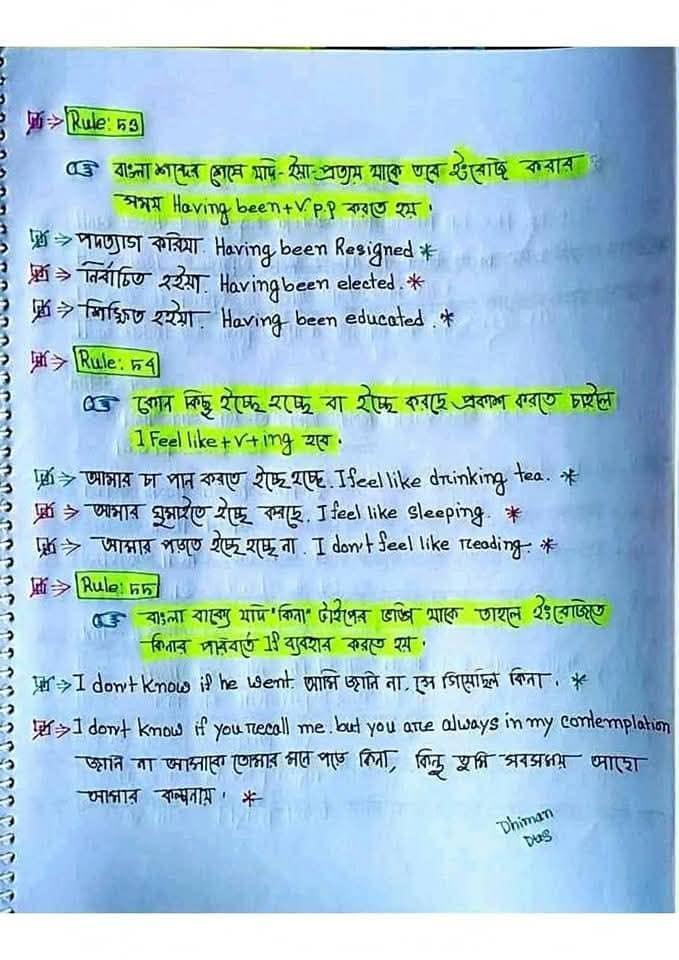 Rule: 53
বাংলা শব্দের শেষে যদি-ইয়া-প্রত্যয় থাকে তবে ইংরেজি করার
সময় Having been+V.p.p করতে হয়।
পদত্যাগ করিয়া. Having been Resigned *
নির্বাচিত হইয়া. Having been elected. *
শিক্ষিত হইয়া. Having been educated. *
Rule: 54
কোন কিছু ইচ্ছে হচ্ছে বা ইচ্ছে করছে প্রকাশ করতে চাইলে
I Feel like+v+ing হবে।
আমার চা পান করতে ইচ্ছে হচ্ছে. I feel like drinking tea. *
আমার ঘুমাইতে ইচ্ছে করছে. I feel like sleeping. *
আমার পড়তে ইচ্ছে হচ্ছে না. I don't feel like reading. *
Rule: 55
বাংলা বাক্যে যদি "কিনা" টাইপের উক্তি থাকে তাহলে ইংরেজিতে
কিনার পরিবর্তে If ব্যবহার করতে হয়।
I don't know if he went. আমি জানি না, সে গিয়েছিল কিনা. *
I don't know if you recall me. but you are always in my contemplation
জানি না আমাকে তোমার মনে পড়ে কিনা, কিন্তু তুমি সবসময় আছো
আমার কল্পনায়. *
Dhiman
Das